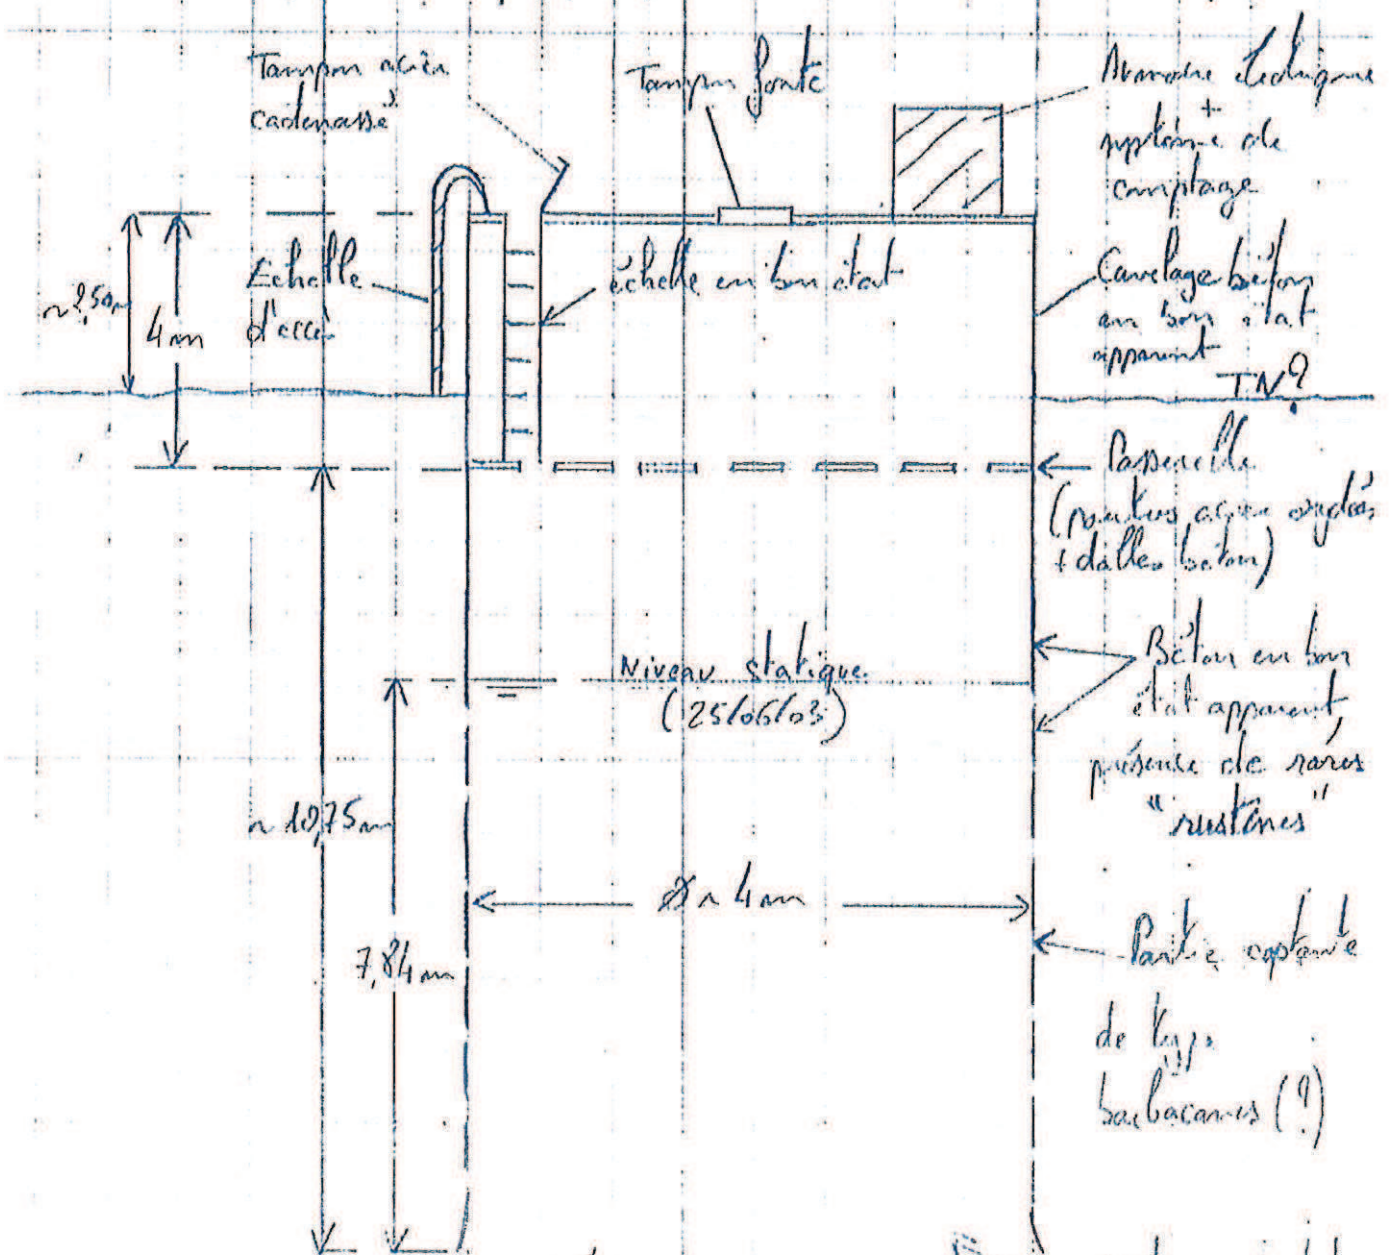 Tampon acier
cadenassé
Tampon fonte
Armoire électrique
+
système de
comptage
~2,50m
4m
Echelle
d'accès
échelle en bon état
Cuvelage béton
en bon état
apparent
TN?
Passerelle
(poutres acier oxydées
+ dalles béton)
Niveau statique
(25/06/03)
Béton en bon
état apparent,
présence de rares
"rustines"
~10,75m
Ø ~ 4m
7,84m
Partie captante
de type
barbacanes (?)